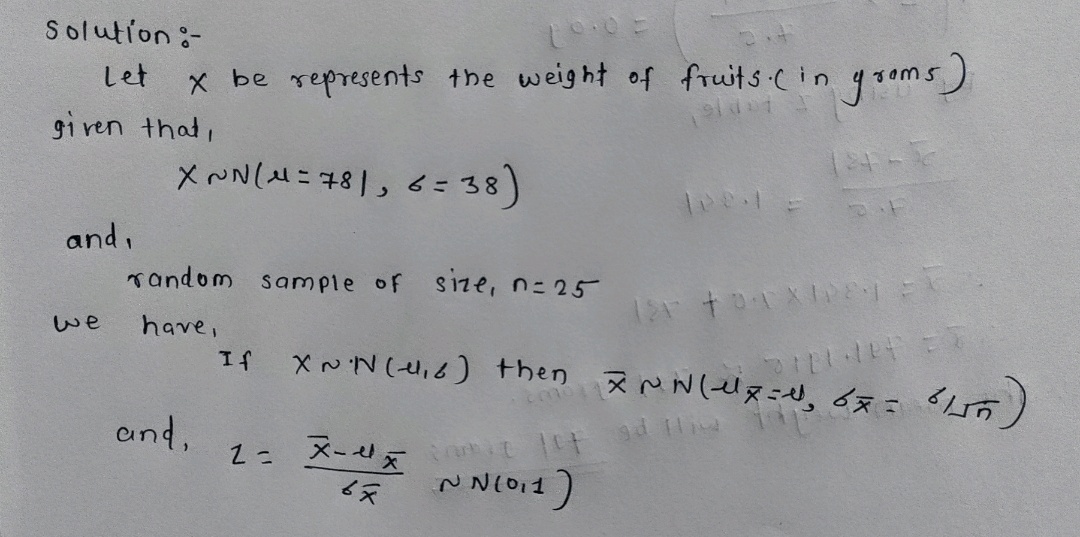 Solution :-
Let X be represents the weight of fruits. (in grams)
given that,
X ~ N(μ = 781, σ = 38)
and,
random sample of size, n = 25
we have,
If X ~ N(μ, σ) then x̄ ~ N(μx̄ = μ, σx̄ = σ/√n)
and, z = (x̄ - μx̄) / σx̄ ~ N(0,1)